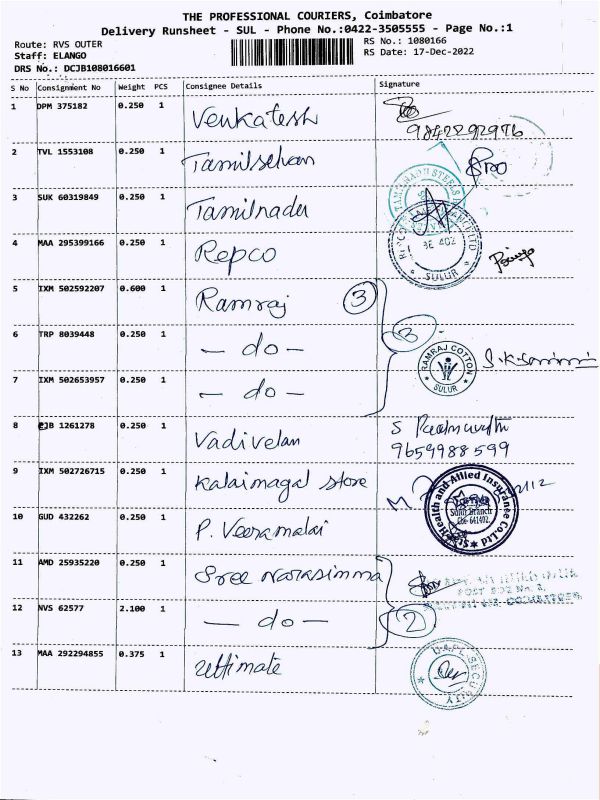 THE PROFESSIONAL COURIERS, Coimbatore
Delivery Runsheet - SUL - Phone No.:0422-3505555 - Page No.:1
Route: RVS OUTER
Staff: ELANGO
DRS No.: DCJB108016601
RS No.: 1080166
RS Date: 17-Dec-2022
S No Consignment No Weight PCS Consignee Details Signature
1 DPM 375182 0.250 1 Venkatesh
9842292976
2 TVL 1553108 0.250 1 Tamilselvan
3 SUK 60319849 0.250 1 Tamilnadu
4 MAA 295399166 0.250 1 Repco
SULUR
5 IXM 502592207 0.600 1 Ramraj 3
6 TRP 8039448 0.250 1 - do - 3
7 IXM 502653957 0.250 1 - do -
RAMRAJ COTTON
SULUR
8 CJB 1261278 0.250 1 Vadivelan
9659988599
9 IXM 502726715 0.250 1 Kalaimagal store
Star Health and Allied Insurance Co.Ltd
Sulur Branch
Cbe- 641402.
10 GUD 432262 0.250 1 P. Veeramalai
11 AMD 25935220 0.250 1 Sree Narasimma
POST BOX No.
COIMBATORE
12 NVS 62577 2.100 1 - do - 2
13 MAA 292294855 0.375 1 Ultimate
SECURITY